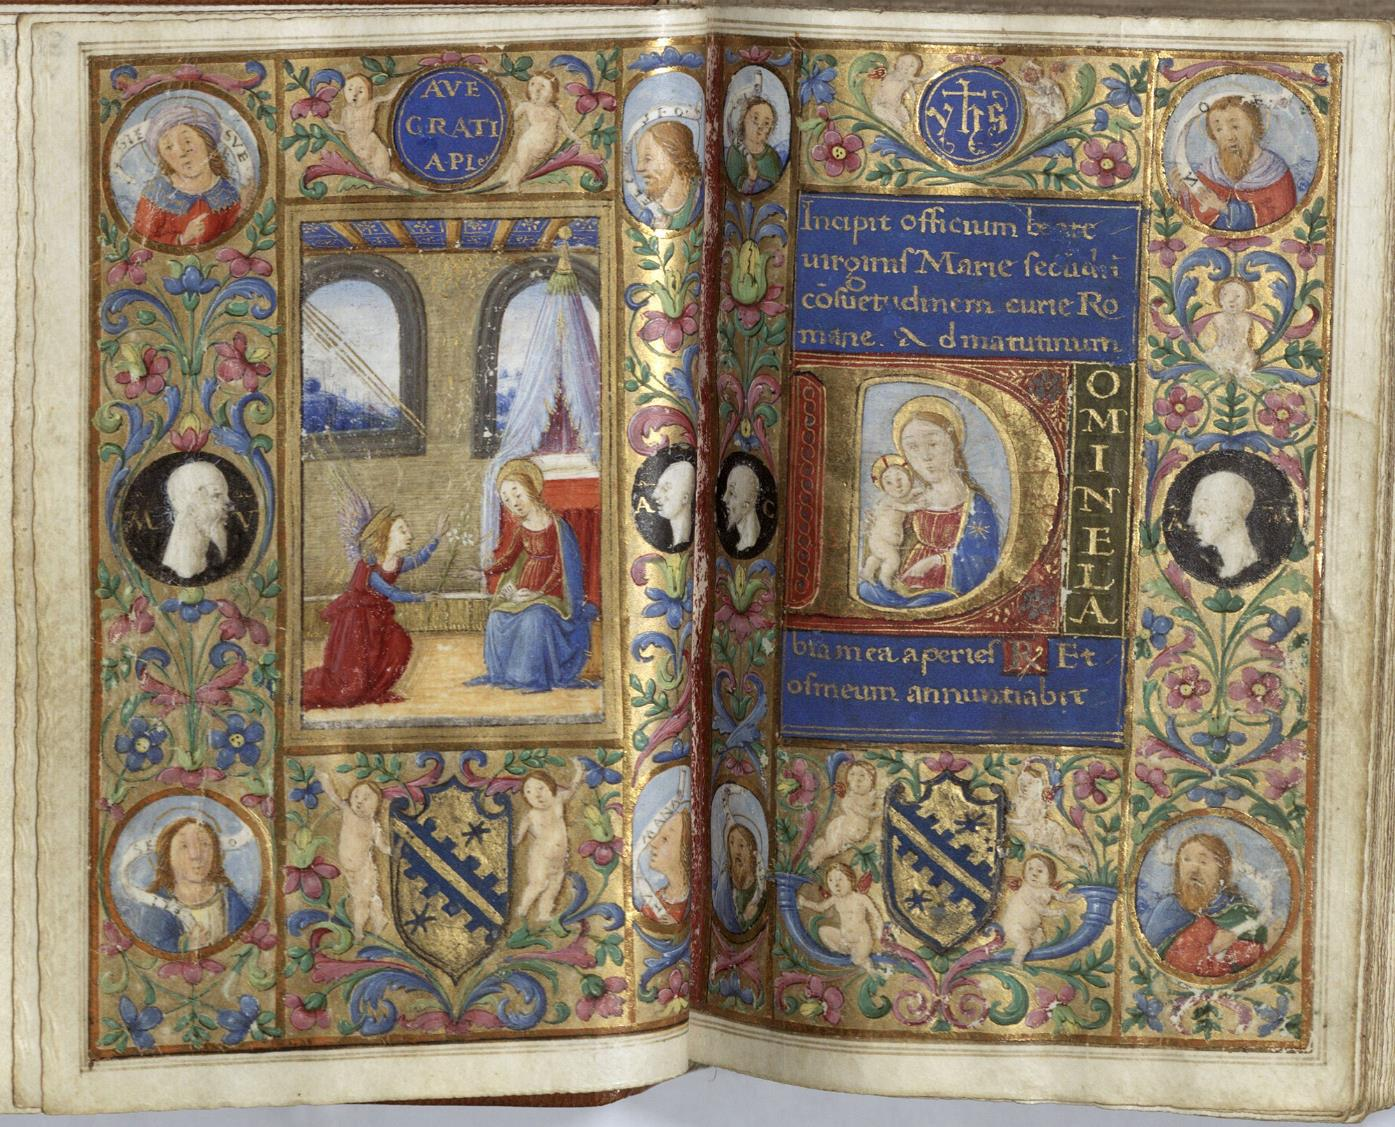 AVE
GRATI
A PLE
IESVE
M V
A C
yhs
Incipit officium beate
uirginis Marie secūdū
cōsuetudinem curie Ro
mane. Ad matutinum
D
OMINE LA
bia mea aperies ℟ Et
os meum annuntiabit